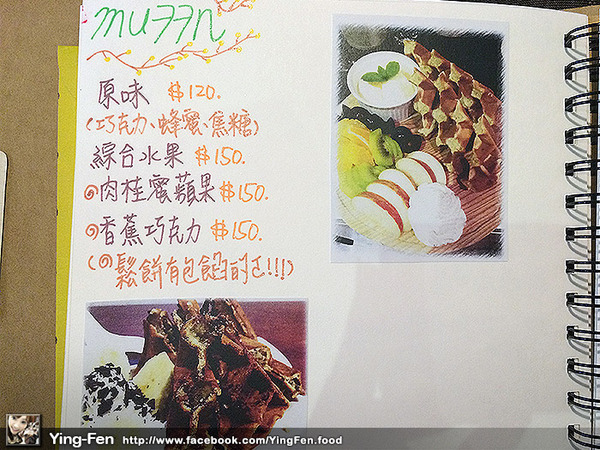 muffin
原味 $120.
(巧克力、蜂蜜、焦糖)
綜合水果 $150.
肉桂蜜蘋果 $150.
香蕉巧克力 $150.
(鬆餅有包餡的ㄛ!!!)
Ying-Fen http://www.facebook.com/YingFen.food